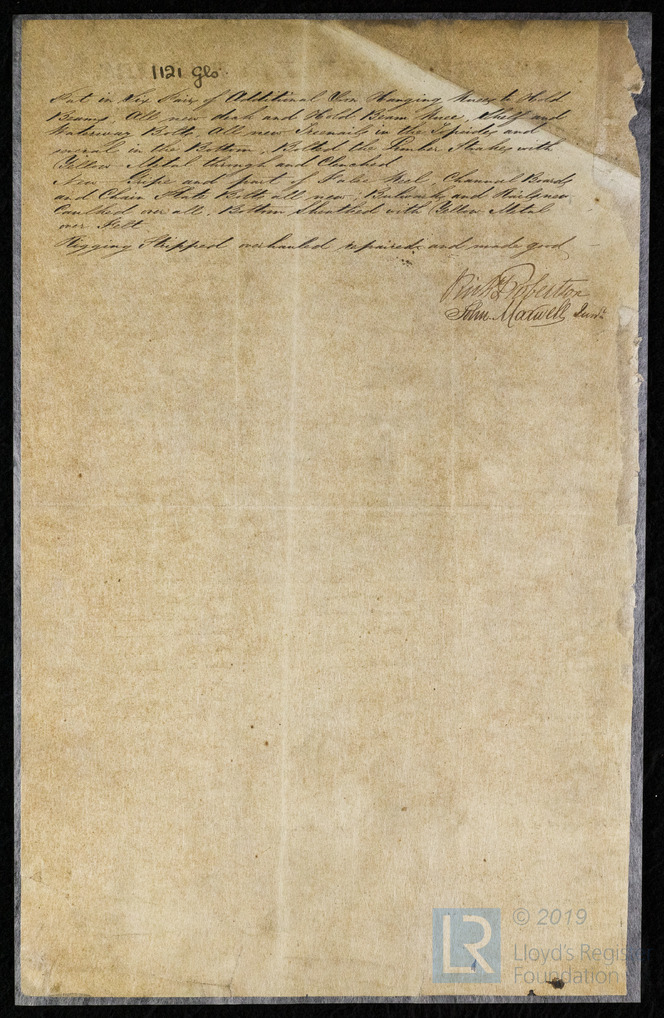 1121 Gls.
Put in Six Pairs of Additional Iron Hanging Knees to Hold
Beams, All new deck and Hold Beam Knee, Shelf and
Waterway Bolts, All new Treenails in the Topsides and
several in the Bottom, Bolted the Limber Strakes with
Yellow Metal through and Clenched
New and part of False Keel, Channel Boards
and Chain Plate Bolts all new, Bulwark and Rails new
Caulked over all, Bottom Sheathed with Yellow Metal
over Felt
Rigging Stripped overhauled repaired and made good
Robertson
John Maxwell
LR
© 2019
Lloyd's Register
Foundation